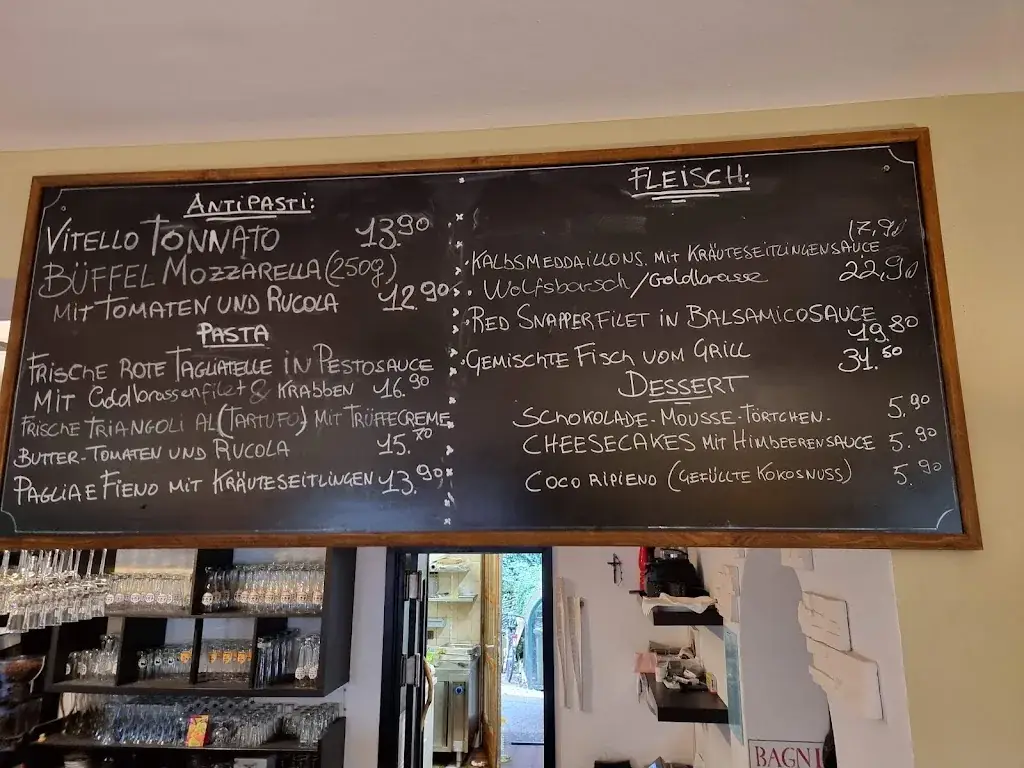 ANTIPASTI:
VITELLO TONNATO 13.90
BÜFFEL MOZZARELLA (250g)
MIT TOMATEN UND RUCOLA 12.90
PASTA
FRISCHE ROTE TAGLIATELLE IN PESTOSAUCE
MIT Goldbrassenfilet & KRABBEN 16.90
FRISCHE TRIANGOLI AL (TARTUFO) MIT TRÜFFECREME
BUTTER-TOMATEN UND RUCOLA 15.70
PAGLIA E FIENO MIT KRÄUTESEITLINGEN 13.90
FLEISCH:
17,90
KALBSMEDDAILLONS. MIT KRÄUTESEITLINGENSAUCE
Wolfsbarsch/Goldbrasse 22,90
RED SNAPPERFILET IN BALSAMICOSAUCE
19.80
GEMISCHTE FISCH VOM GRILL 31.50
DESSERT
SCHOKOLADE-MOUSSE-TÖRTCHEN. 5.90
CHEESECAKES MIT HIMBEERENSAUCE 5.90
COCO RIPIENO (GEFÜLLTE KOKOSNUSS) 5.90
BAGNI